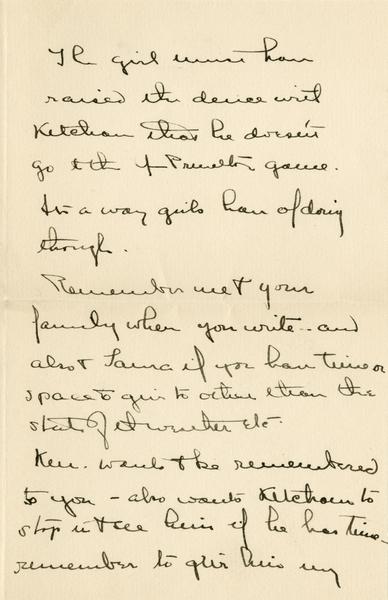 The girl must have
raised the deuce with
Ketcham that he doesn't
go to the Princeton game.
It's a way girls have of doing
though.
Remember me to your
family when you write - and
also to Laura if you have time or
space to give to other than the
state of the weather etc.
Ken. wants to be remembered
to you - also wants Ketcham to
stop in to see him if he has time -
remember to give him my